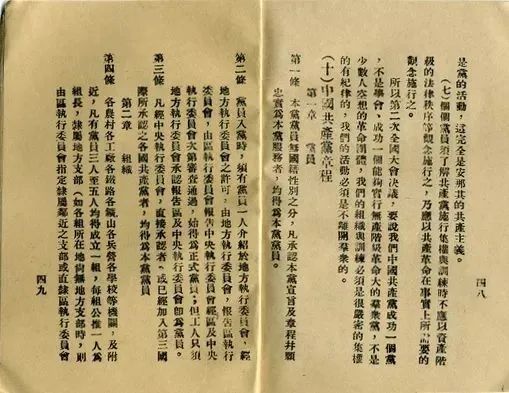 是黨的活動，這完全是安那其的共產主義。
（七）個個黨員須了解共產黨施行集權與訓練時不應以資產階
級的法律秩序等觀念施行之，乃應以共產革命在事實上所需要的
觀念施行之。
所以第二次全國大會決議，要說我們中國共產黨成功一個黨
，不是學會、成功一個能夠實行無產階級革命大的羣衆黨，不是
少數人空想的革命團體，我們的組織與訓練必須是很嚴密的集權
的有紀律的，我們的活動必須是不離開羣衆的。
（十）中國共產黨章程
第一章　黨員
第一條　本黨黨員無國籍性別之分，凡承認本黨宣言及章程幷願
忠實爲本黨服務者，均得爲本黨黨員。
四八
第二條　黨員入黨時，須有黨員一人介紹於地方執行委員會，經
地方執行委員會之許可，由地方執行委員會，報告區執行
委員會，由區執行委員會報告中央執行委員會經區及中央
執行委員會次第審查通過，始得爲正式黨員；但工人只須
地方執行委員會承認報告區及中央執行委員會卽爲黨員。
第三條　凡經中央執行委員會，直接承認者、或已經加入第三國
際所承認之各國共產黨者，均得爲本黨黨員
第二章　組織
第四條　各農村各工廠各鐵路各鑛山各兵營各學校等機關，及附
近，凡有黨員三人至五人均得成立一組，每組公推一人爲
組長，隸屬地方支部（如各組所在地尚無地方支部時，則
由區執行委員會指定隸屬鄰近之支部或直隸區執行委員會
四九